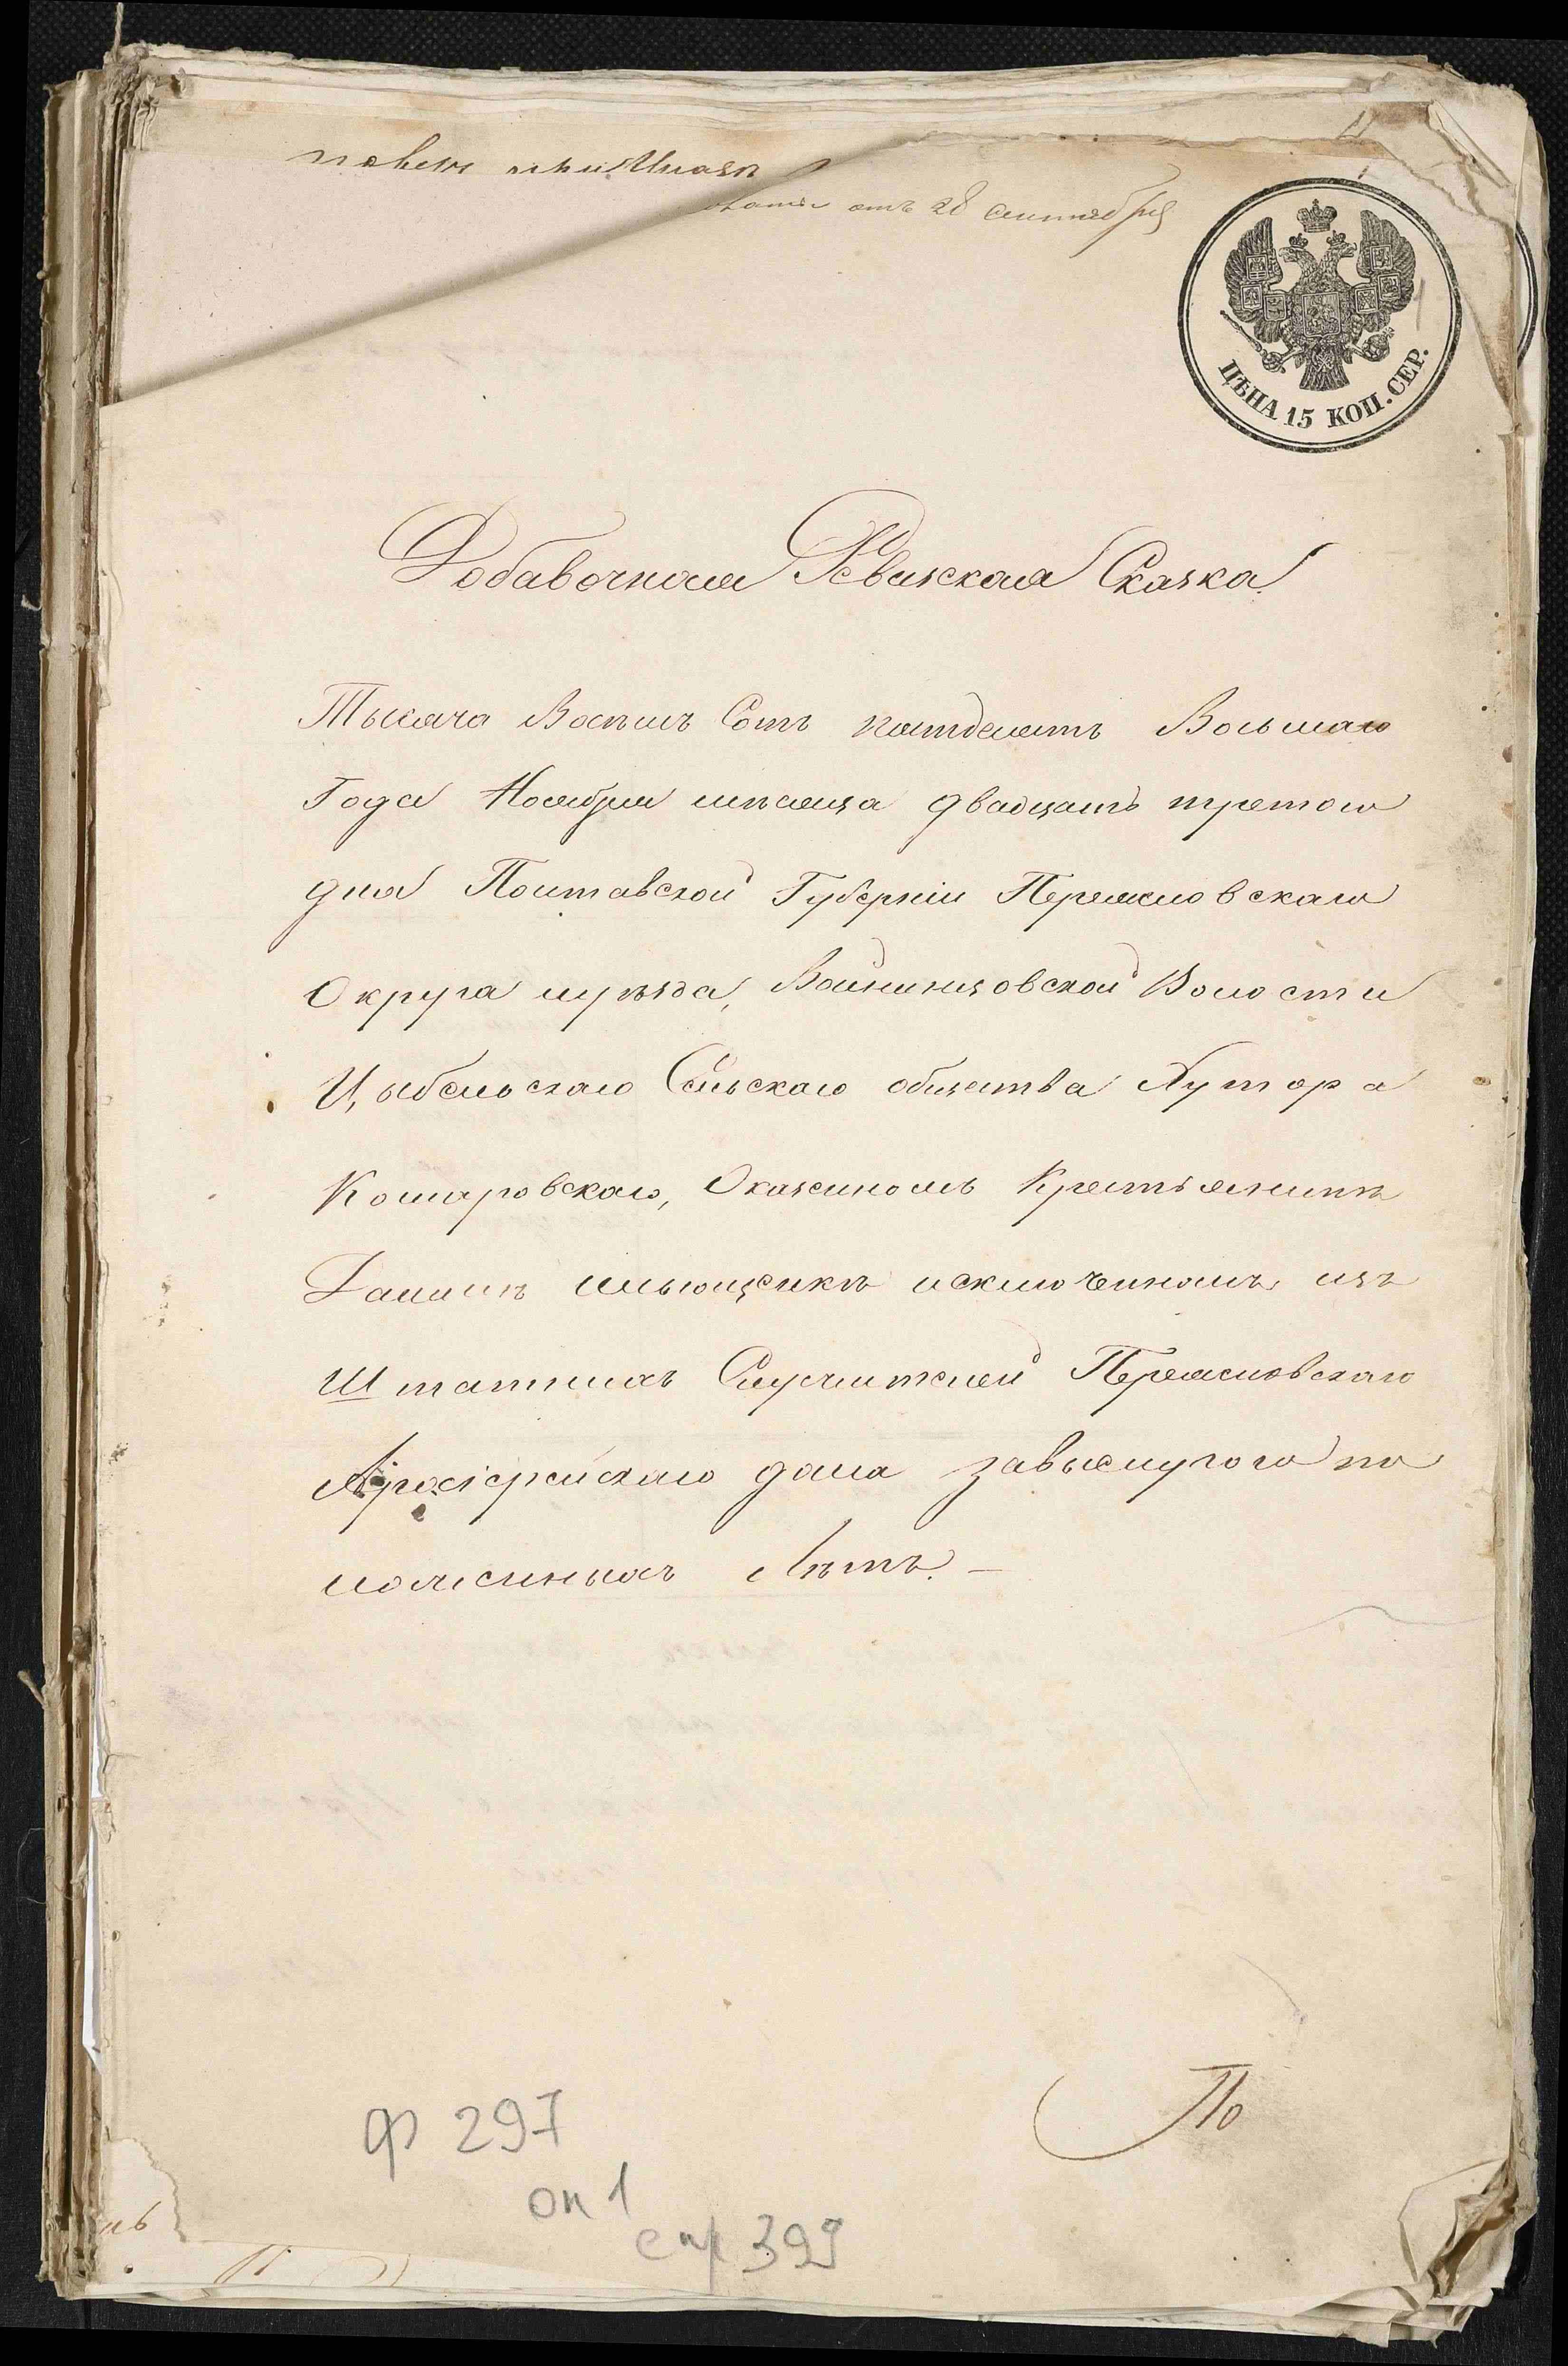 отъ 28 Сентября
ЦѢНА 15 КОП. СЕР.
Добавочная Ревизская Сказка
Тысяча Восѣмъ Сотъ пятдесятъ Восьмаго
Года Ноября мѣсяца двадцать третого
дня Полтавской Губерніи Переяславскаго
Округа иуѣзда, Войнинцовской Волости
Цыбельскаго Сельскаго общества Хутора
Комаровскаго, Оказеномъ Крестьянинѣ
исключеномъ изъ
Штатныхъ Служителей Переясловскаго
Архіерейскаго дома завыслугою по
ложенныхъ Лѣтъ. —
По
Ф 297
оп 1
спр 399